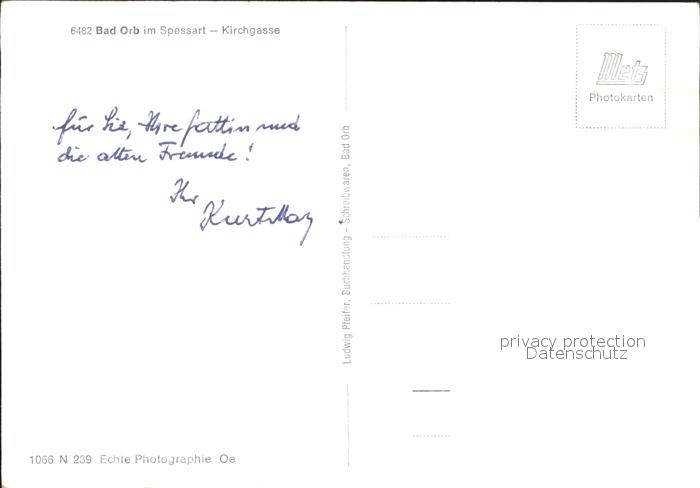 6482 Bad Orb im Spessart – Kirchgasse
Metz
Photokarten
für Sie, Ihre Gattin und
die alten Freunde!
Ihr
Kurt May
Ludwig Pfeifer, Buchhandlung – Schreibwaren, Bad Orb
privacy protection
Datenschutz
1066 N 239 Echte Photographie Oe